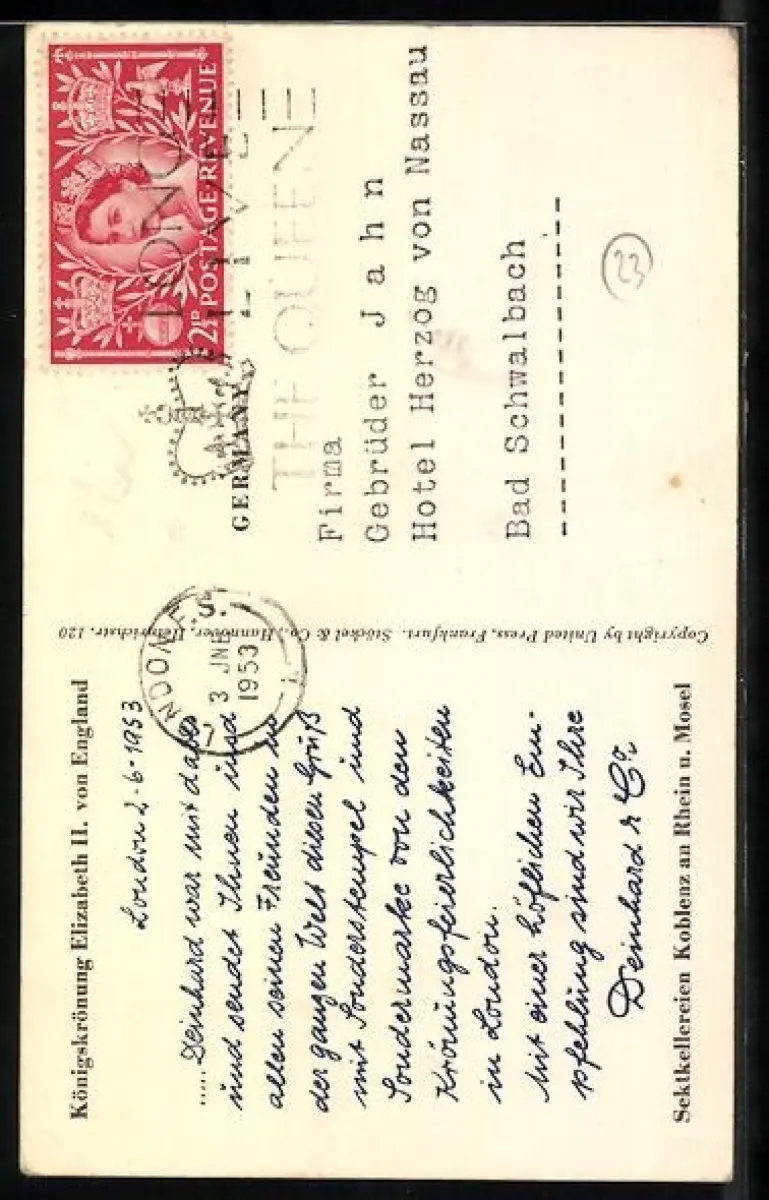 Königskrönung Elizabeth II. von England
London 2-6-1953
.....Deinhard war mit dabei
und sendet Ihnen und
allen seinen Freunden in
der ganzen Welt diesen Gruß
mit Sonderstempel und
Sondermarke von den
Krönungsfeierlichkeiten
in London.
Mit einer höflichen Em-
pfehlung sind wir Ihre
Deinhard & Co.
Sektkellereien Koblenz an Rhein u. Mosel
Copyright by United Press, Frankfurt. Stöckel & Co., Hannover, Heinrichstr. 120
LONDON
S.
3 JNE
1953
2½D POSTAGE REVENUE
LONG
LIVE
THE QUEEN
GERMANY
Firma
Gebrüder Jahn
Hotel Herzog von Nassau
Bad Schwalbach
23